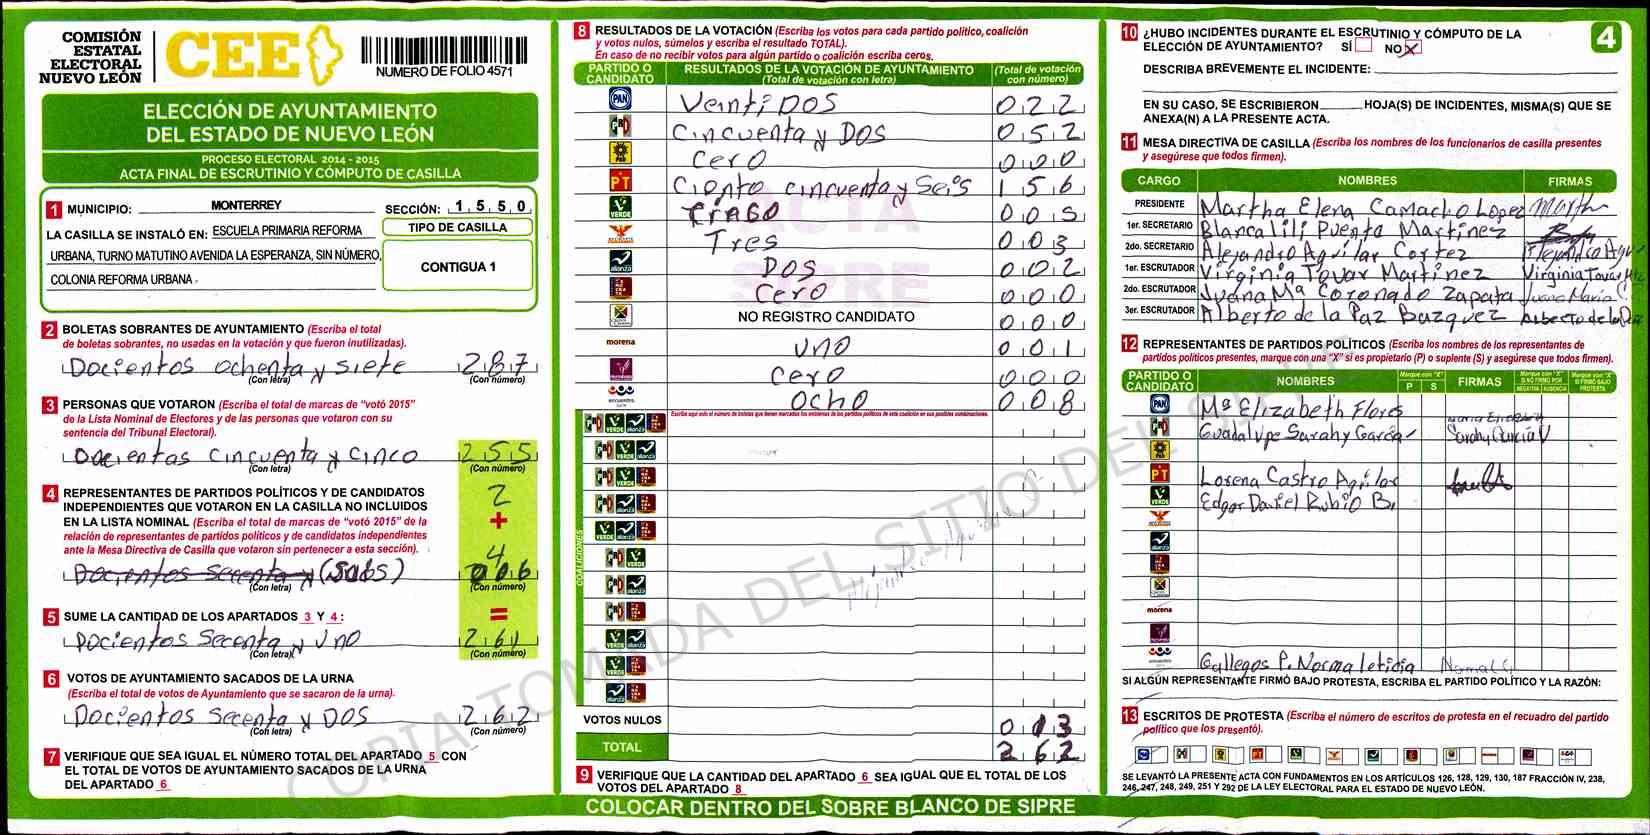 COMISIÓN
ESTATAL
ELECTORAL
NUEVO LEÓN
CEE
NUMERO DE FOLIO 4571
ELECCIÓN DE AYUNTAMIENTO
DEL ESTADO DE NUEVO LEÓN
PROCESO ELECTORAL 2014 - 2015
ACTA FINAL DE ESCRUTINIO Y CÓMPUTO DE CASILLA
1 MUNICIPIO: MONTERREY SECCIÓN: 1 5 5 0
LA CASILLA SE INSTALÓ EN: ESCUELA PRIMARIA REFORMA
URBANA, TURNO MATUTINO AVENIDA LA ESPERANZA, SIN NÚMERO,
COLONIA REFORMA URBANA
TIPO DE CASILLA
CONTIGUA 1
2 BOLETAS SOBRANTES DE AYUNTAMIENTO (Escriba el total
de boletas sobrantes, no usadas en la votación y que fueron inutilizadas).
Docientos ochenta y siete 287
(Con letra) (Con número)
3 PERSONAS QUE VOTARON (Escriba el total de marcas de "votó 2015"
de la Lista Nominal de Electores y de las personas que votaron con su
sentencia del Tribunal Electoral).
Docientas cincuenta y cinco 255
(Con letra) (Con número)
4 REPRESENTANTES DE PARTIDOS POLÍTICOS Y DE CANDIDATOS
INDEPENDIENTES QUE VOTARON EN LA CASILLA NO INCLUIDOS
EN LA LISTA NOMINAL (Escriba el total de marcas de "votó 2015" de la
relación de representantes de partidos políticos y de candidatos independientes
ante la Mesa Directiva de Casilla que votaron sin pertenecer a esta sección).
2
+
4
Docientos secenta y 006
(Con letra) (Con número)
=
5 SUME LA CANTIDAD DE LOS APARTADOS 3 Y 4:
Docientos secenta y uno 261
(Con letra) (Con número)
6 VOTOS DE AYUNTAMIENTO SACADOS DE LA URNA
(Escriba el total de votos de Ayuntamiento que se sacaron de la urna).
Docientos secenta y DOS 262
(Con letra) (Con número)
7 VERIFIQUE QUE SEA IGUAL EL NÚMERO TOTAL DEL APARTADO 5 CON
EL TOTAL DE VOTOS DE AYUNTAMIENTO SACADOS DE LA URNA
DEL APARTADO 6
8 RESULTADOS DE LA VOTACIÓN (Escriba los votos para cada partido político, coalición
y votos nulos, súmelos y escriba el resultado TOTAL).
En caso de no recibir votos para algún partido o coalición escriba ceros.
PARTIDO O CANDIDATO RESULTADOS DE LA VOTACIÓN DE AYUNTAMIENTO (Total de votación con letra) (Total de votación con número)
PAN Veinti DOS 022
PRI Cincuenta y DOS 052
PRD Cero 000
PT Ciento cincuenta y Seis 156
VERDE cinco 005
Tres 003
alianza DOS 002
Cero 000
NO REGISTRO CANDIDATO 000
morena uno 001
Cero 000
encuentro ocho 008
Escriba aquí solo el número de boletas que tienen marcados los emblemas de los partidos políticos de esta coalición en sus posibles combinaciones.
COALICIONES
VOTOS NULOS 013
TOTAL 262
9 VERIFIQUE QUE LA CANTIDAD DEL APARTADO 6 SEA IGUAL QUE EL TOTAL DE LOS
VOTOS DEL APARTADO 8
COLOCAR DENTRO DEL SOBRE BLANCO DE SIPRE
ACTA
SIPRE
COPIA TOMADA DEL SITIO DEL SIPRE
10 ¿HUBO INCIDENTES DURANTE EL ESCRUTINIO Y CÓMPUTO DE LA
ELECCIÓN DE AYUNTAMIENTO? SÍ NO X
4
DESCRIBA BREVEMENTE EL INCIDENTE:
EN SU CASO, SE ESCRIBIERON HOJA(S) DE INCIDENTES, MISMA(S) QUE SE
ANEXA(N) A LA PRESENTE ACTA.
11 MESA DIRECTIVA DE CASILLA (Escriba los nombres de los funcionarios de casilla presentes
y asegúrese que todos firmen).
CARGO NOMBRES FIRMAS
PRESIDENTE Martha Elena Camacho Lopez Martha
1er. SECRETARIO Blanca lili Puente Martinez
2do. SECRETARIO Alejandro Aguilar Cortez Alejandro Agui
1er. ESCRUTADOR Virginia Tovar Martinez Virginia Tovar Mtz
2do. ESCRUTADOR Juana Mª Coronado Zapata Juana Maria C.
3er. ESCRUTADOR Alberto de la Paz Bazquez Alberto de la Paz
12 REPRESENTANTES DE PARTIDOS POLÍTICOS (Escriba los nombres de los representantes de
partidos políticos presentes, marque con una "X" si es propietario (P) o suplente (S) y asegúrese que todos firmen).
PARTIDO O CANDIDATO NOMBRES Marque con "X" P S FIRMAS Marque con "X" SI NO FIRMÓ POR NEGATIVA AUSENCIA Marque con "X" SI FIRMÓ BAJO PROTESTA
PAN Mª Elizabeth Flores
PRI Guadalupe Sarahy Garcia Sarahy Garcia V
PRD
PT Lorena Castro Aguilar
VERDE Edgar Daniel Rubio B.
alianza
morena
encuentro Gallegos P. Norma leticia Norma L G
SI ALGÚN REPRESENTANTE FIRMÓ BAJO PROTESTA, ESCRIBA EL PARTIDO POLÍTICO Y LA RAZÓN:
13 ESCRITOS DE PROTESTA (Escriba el número de escritos de protesta en el recuadro del partido
político que los presentó).
SE LEVANTÓ LA PRESENTE ACTA CON FUNDAMENTOS EN LOS ARTÍCULOS 126, 128, 129, 130, 187 FRACCIÓN IV, 238,
246, 247, 248, 249, 251 Y 292 DE LA LEY ELECTORAL PARA EL ESTADO DE NUEVO LEÓN.